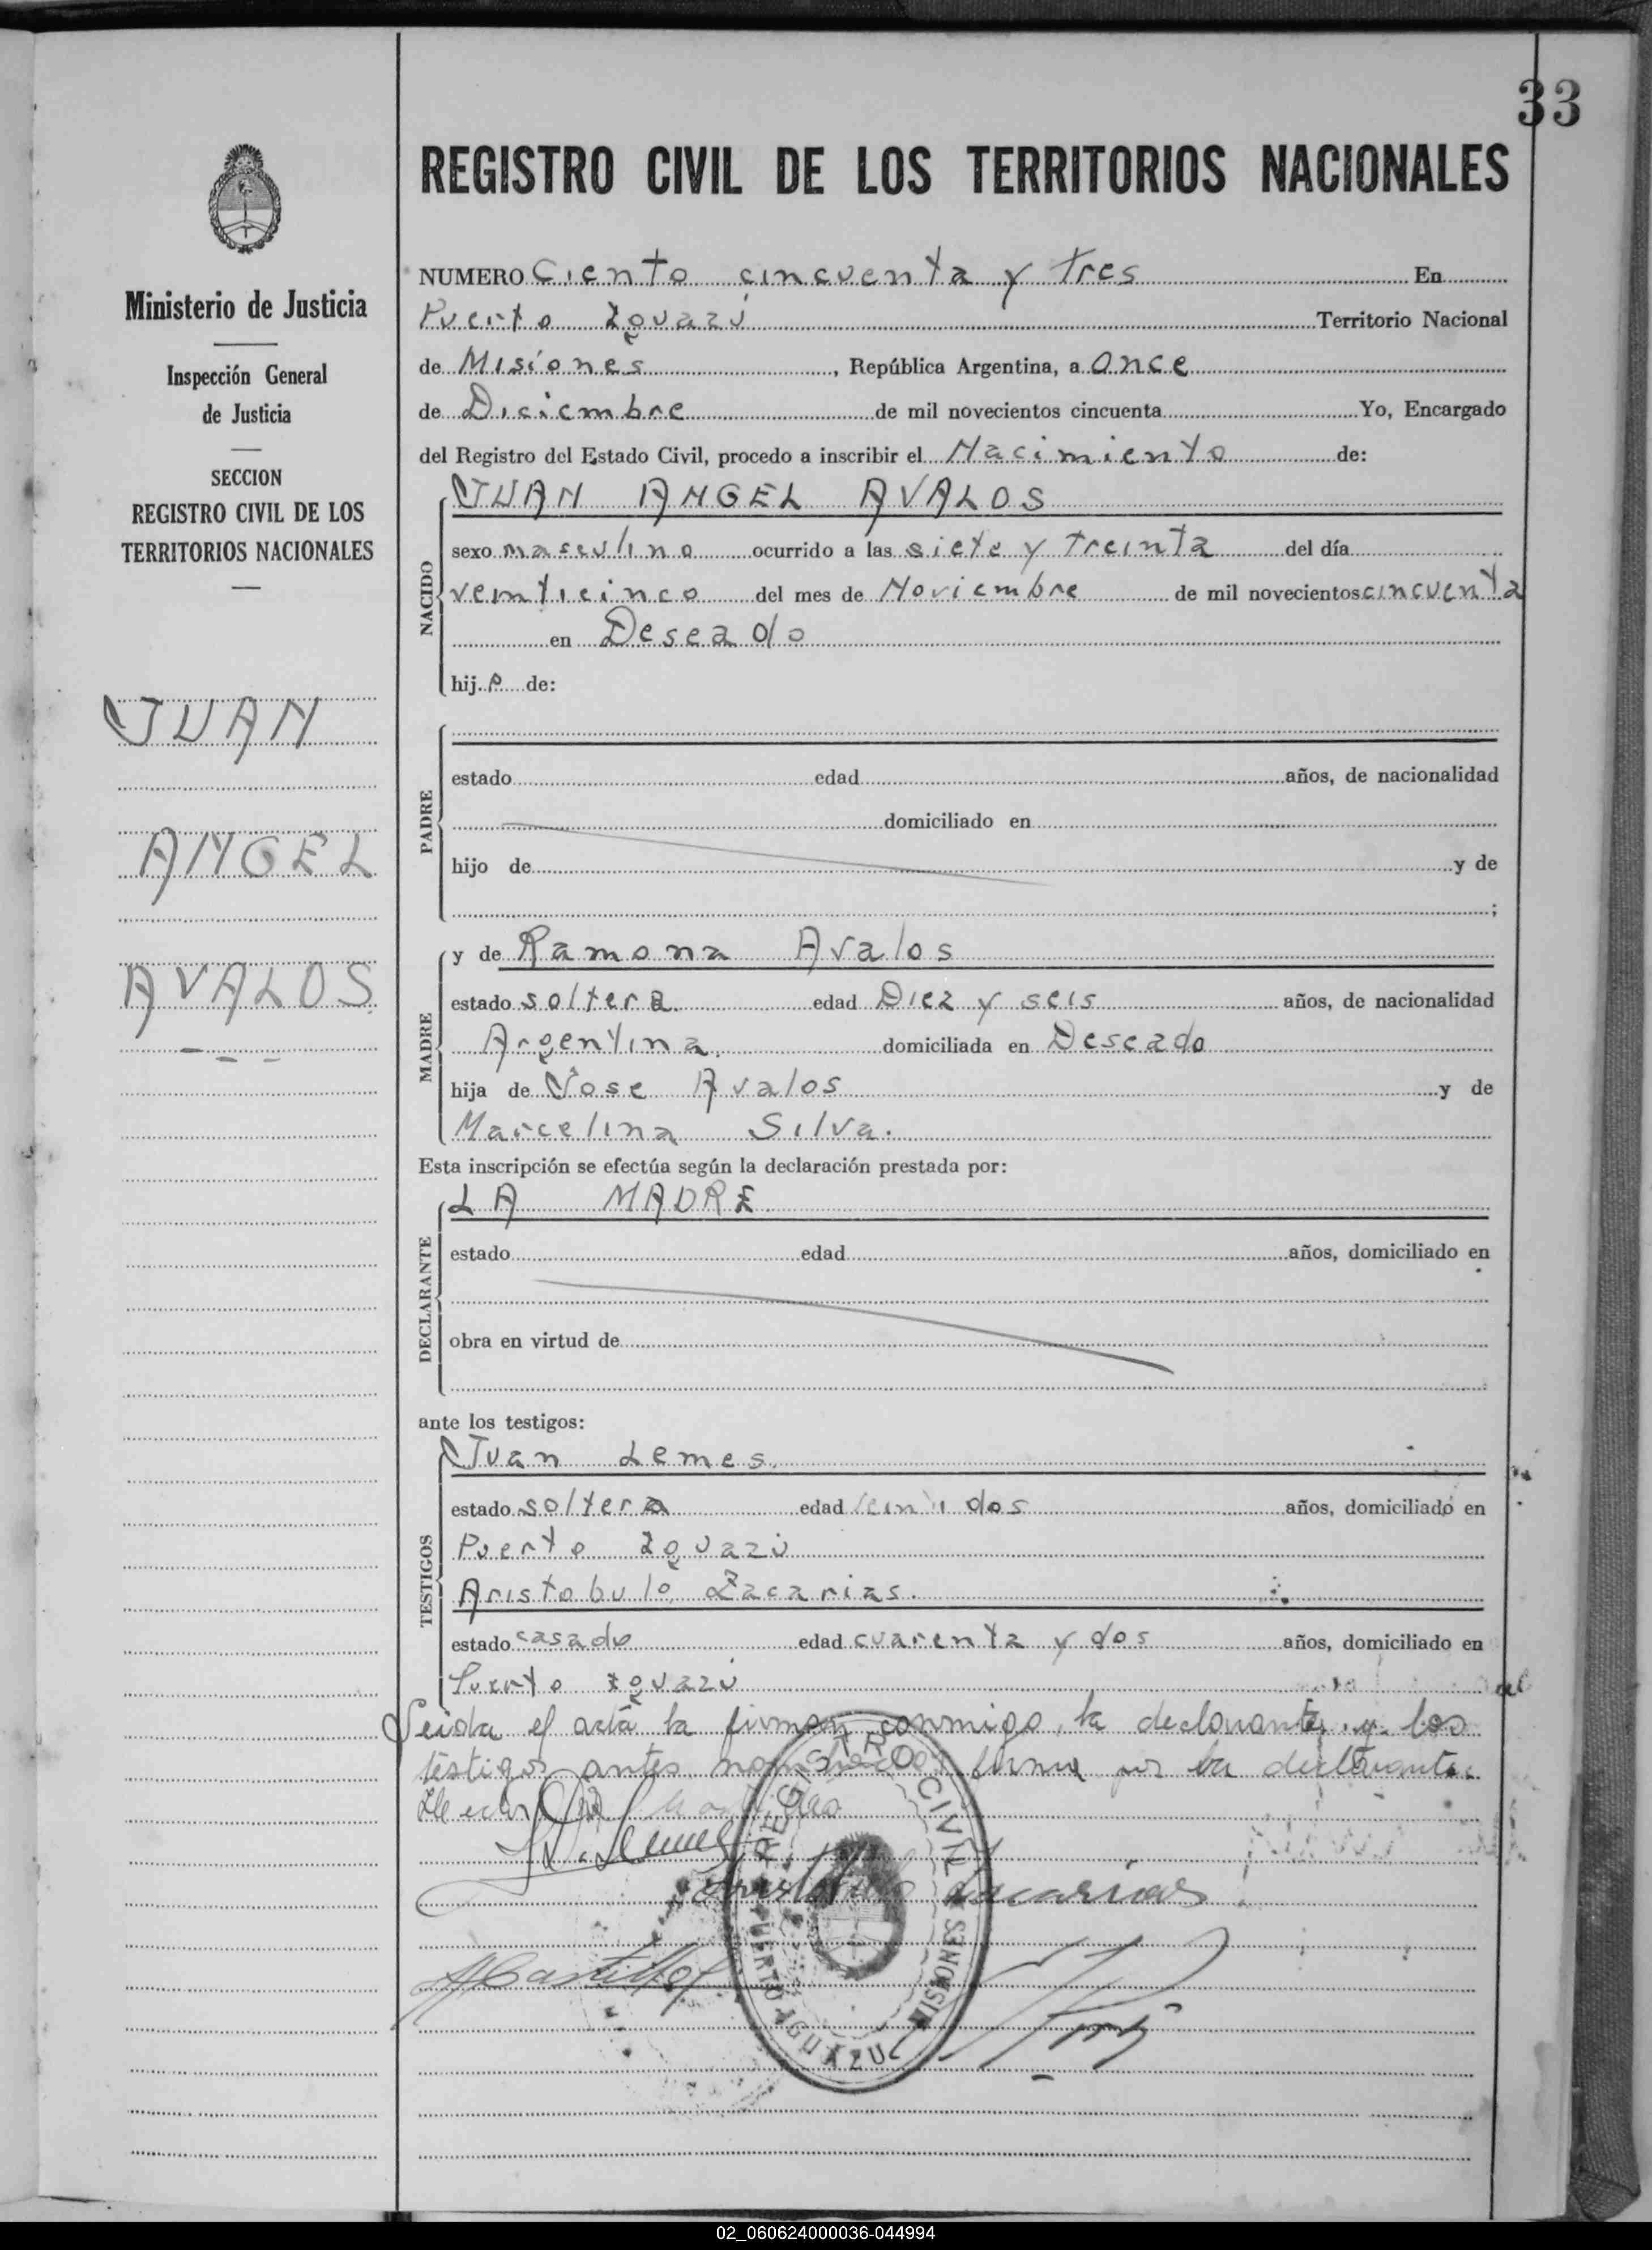 33
REGISTRO CIVIL DE LOS TERRITORIOS NACIONALES
Ministerio de Justicia
Inspección General
de Justicia
SECCION
REGISTRO CIVIL DE LOS
TERRITORIOS NACIONALES
JUAN
ANGEL
AVALOS
NUMERO Ciento cincuenta y tres En
Puerto Iguazú Territorio Nacional
de Misiones, República Argentina, a once
de Diciembre de mil novecientos cincuenta Yo, Encargado
del Registro del Estado Civil, procedo a inscribir el Nacimiento de:
NACIDO
JUAN ANGEL AVALOS
sexo masculino ocurrido a las siete y treinta del día
veinticinco del mes de Noviembre de mil novecientos cincuenta
en Deseado
hijo de:
PADRE
estado edad años, de nacionalidad
domiciliado en
hijo de y de
;
MADRE
y de Ramona Avalos
estado soltera. edad Diez y seis años, de nacionalidad
Argentina. domiciliada en Deseado
hija de Jose Avalos y de
Marcelina Silva.
Esta inscripción se efectúa según la declaración prestada por:
DECLARANTE
LA MADRE
estado edad años, domiciliado en
obra en virtud de
ante los testigos:
TESTIGOS
Juan Lemes.
estado soltero edad dos años, domiciliado en
Puerto Iguazú
Aristobulo Zacarias.
estado casado edad cuarenta y dos años, domiciliado en
Puerto Iguazú
Leida el acta la firman conmigo, la declarante y los
testigos antes nombrados firma por la declarante.
Lemes
Aristobulo Zacarias
REGISTRO CIVIL
PUERTO IGUAZU MISIONES
02_060624000036-044994